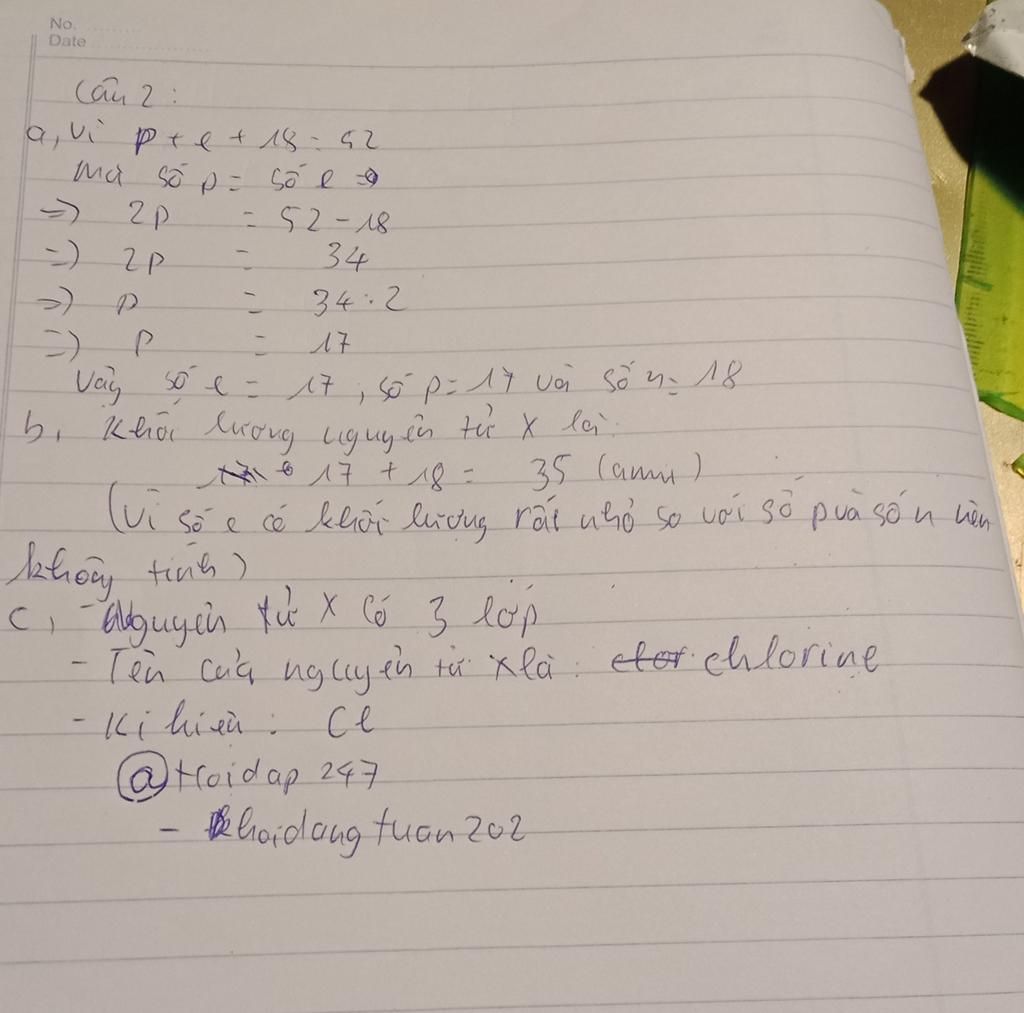 No. ........
Date ........
Câu 2 :
a, Vì p + e + 18 = 52
Mà số p = số e =>
=> 2p = 52 - 18
=> 2p = 34
=> p = 34 : 2
=> p = 17
Vậy số e = 17, số p = 17 và số n = 18
b, Khối lượng nguyên tử X là:
17 + 18 = 35 (amu)
(Vì số e có khối lượng rất nhỏ so với số p và số n nên
không tính)
c, - Nguyên tử X có 3 lớp
- Tên của nguyên tử X là : clor chlorine
- Kí hiệu : Cl
@Hoidap 247
- khoidangtuan202